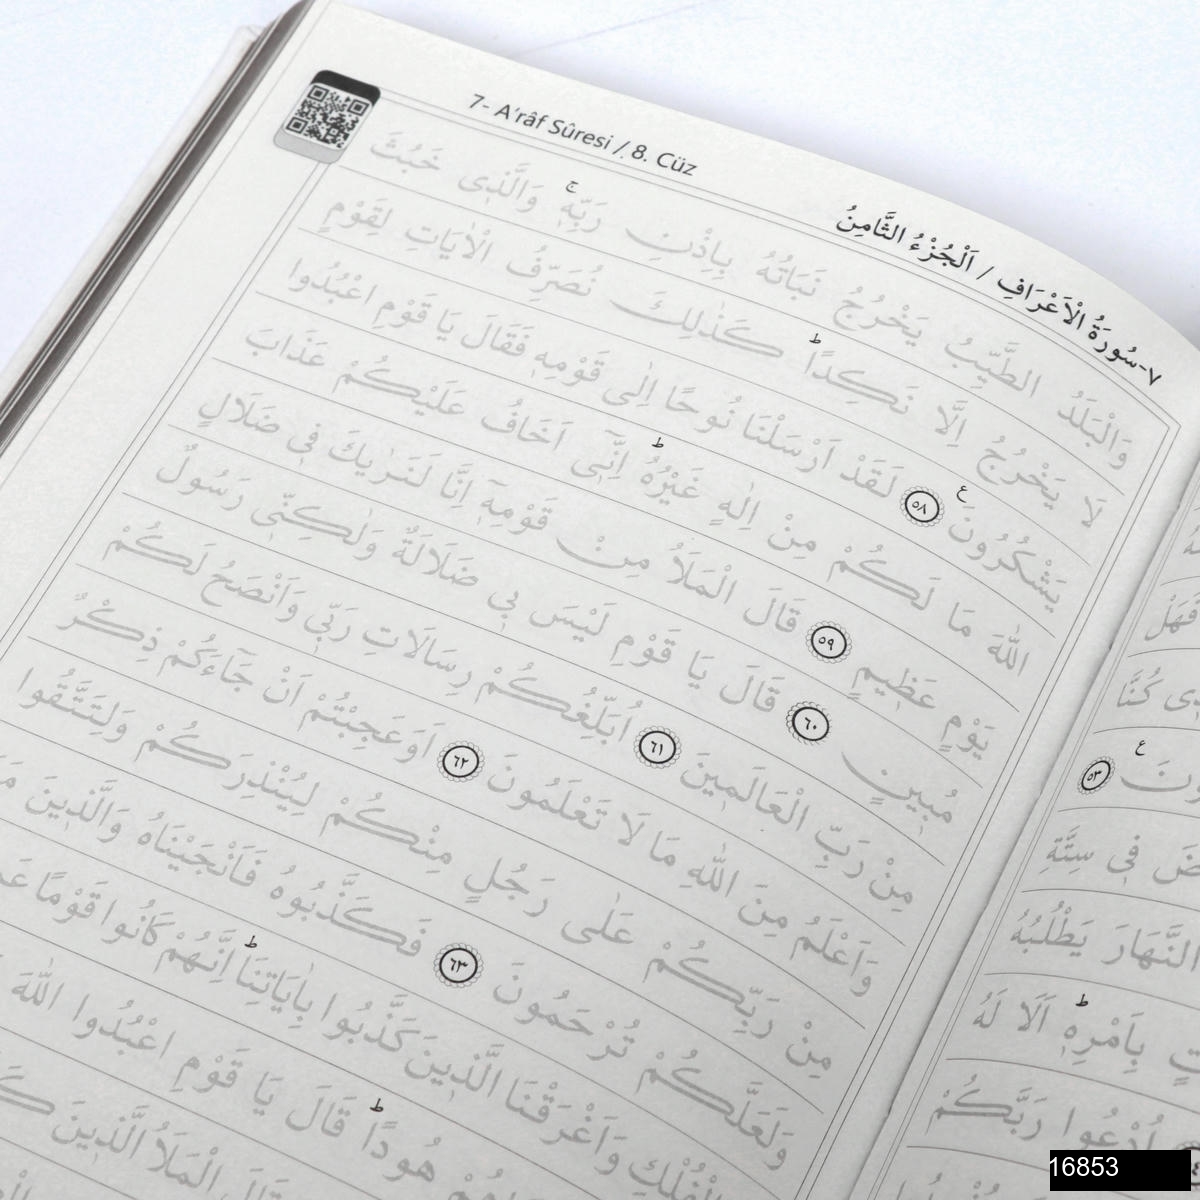 7- A'râf Sûresi / 8. Cüz
٧-سُورَةُ الْاَعْرَافِ / اَلْجُزْءُ الثَّامِنُ
وَالْبَلَدُ الطَّيِّبُ يَخْرُجُ نَبَاتُهُ بِاِذْنِ رَبِّهٖۚ وَالَّذٖى خَبُثَ
لَا يَخْرُجُ اِلَّا نَكِدًاؕ كَذٰلِكَ نُصَرِّفُ الْاٰيَاتِ لِقَوْمٍ
يَشْكُرُونَ ع ٥٨ لَقَدْ اَرْسَلْنَا نُوحًا اِلٰى قَوْمِهٖ فَقَالَ يَا قَوْمِ اعْبُدُوا
اللّٰهَ مَا لَكُمْ مِنْ اِلٰهٍ غَيْرُهُؕ اِنّٖٓى اَخَافُ عَلَيْكُمْ عَذَابَ
يَوْمٍ عَظٖيمٍ ٥٩ قَالَ الْمَلَاُ مِنْ قَوْمِهٖٓ اِنَّا لَنَرٰيكَ فٖى ضَلَالٍ
مُبٖينٍ ٦٠ قَالَ يَا قَوْمِ لَيْسَ بٖى ضَلَالَةٌ وَلٰكِنّٖى رَسُولٌ
مِنْ رَبِّ الْعَالَمٖينَ ٦١ اُبَلِّغُكُمْ رِسَالَاتِ رَبّٖى وَاَنْصَحُ لَكُمْ
وَاَعْلَمُ مِنَ اللّٰهِ مَا لَا تَعْلَمُونَ ٦٢ اَوَعَجِبْتُمْ اَنْ جَٓاءَكُمْ ذِكْرٌ
مِنْ رَبِّكُمْ عَلٰى رَجُلٍ مِنْكُمْ لِيُنْذِرَكُمْ وَلِتَتَّقُوا
وَلَعَلَّكُمْ تُرْحَمُونَ ٦٣ فَكَذَّبُوهُ فَاَنْجَيْنَاهُ وَالَّذٖينَ
الْفُلْكِ وَاَغْرَقْنَا الَّذٖينَ كَذَّبُوا بِاٰيَاتِنَاؕ اِنَّهُمْ كَانُوا قَوْمًا
هُودًاؕ قَالَ يَا قَوْمِ اعْبُدُوا اللّٰهَ
قَالَ الْمَلَاُ الَّذٖينَ
كُنَّا
ع ٥٣
فٖى سِتَّةِ
النَّهَارَ يَطْلُبُهُ
بِاَمْرِهٖؕ اَلَا لَهُ
اُدْعُوا رَبَّكُمْ
16853